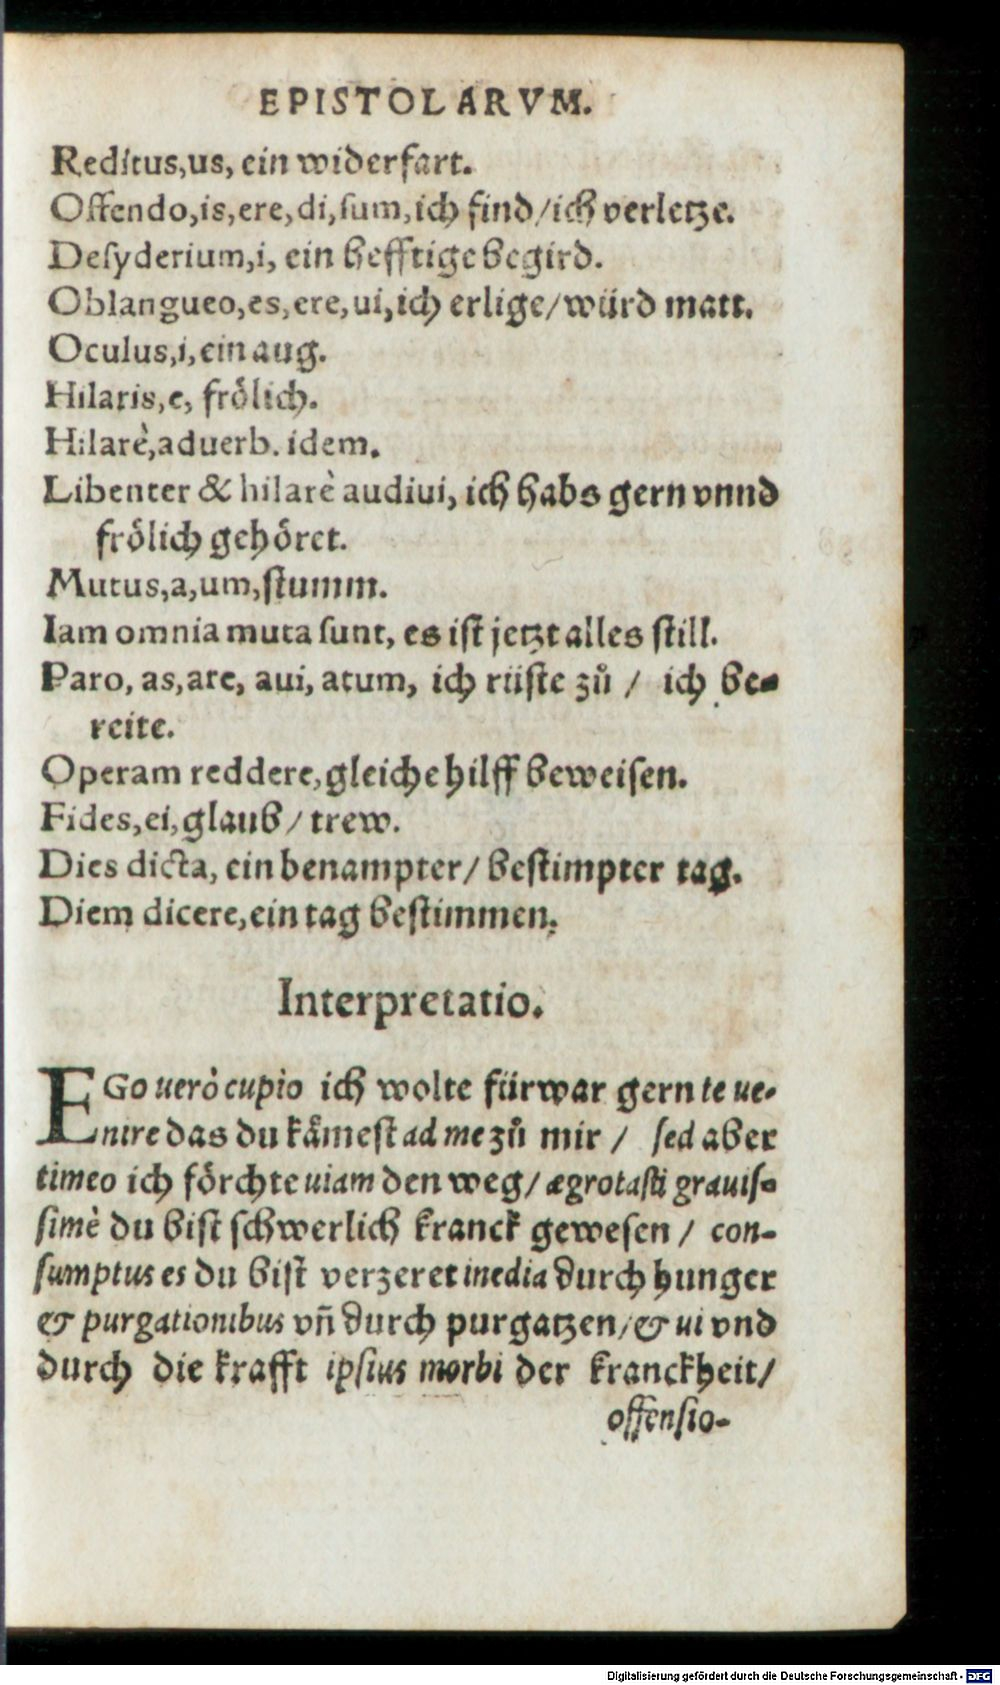 EPISTOLARVM.
Reditus,us, ein widerfart.
Offendo,is,ere,di,sum,ich find/ich verletze.
Desyderium,i, ein hefftige begird.
Oblangueo,es,ere,ui,ich erlige/würd matt.
Oculus,i,ein aug.
Hilaris,e, froͤlich.
Hilarè,aduerb. idem.
Libenter & hilarè audiui, ich habs gern vnnd
froͤlich gehoͤret.
Mutus,a,um,stumm.
Iam omnia muta sunt, es ist jetzt alles still.
Paro, as,are, aui, atum, ich rüste zů / ich be-
reite.
Operam reddere,gleiche hilff beweisen.
Fides,ei,glaub/ trew.
Dies dicta, ein benampter/ bestimpter tag.
Diem dicere,ein tag bestimmen.
Interpretatio.
EGo uerò cupio ich wolte fürwar gern te ue-
nire das du kaͤmest ad me zů mir / sed aber
timeo ich foͤrchte uiam den weg/ ægrotasti grauis-
simè du bist schwerlich kranck gewesen / con-
sumptus es du bist verzeret inedia durch hunger
& purgationibus vñ durch purgatzen/& ui vnd
durch die krafft ipsius morbi der kranckheit/
offensio-
Digitalisierung gefördert durch die Deutsche Forschungsgemeinschaft - DFG